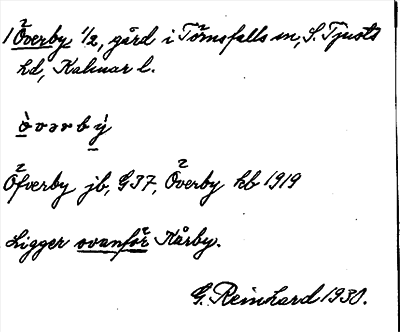 1 Överby 1/2, gård i Törnsfalls sn, S. Tjusts
hd, Kalmar l.
òvərbý
Öfverby jb, G 37, Överby kb 1919
Ligger ovanför Kårby.
G. Reinhard 1930.